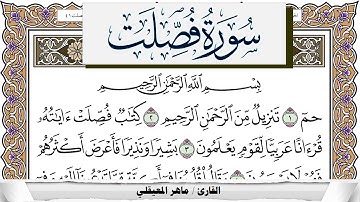 سورة فصلت
بِسْمِ اللَّهِ الرَّحْمَٰنِ الرَّحِيمِ
حمٓ ١ تَنزِيلٌ مِّنَ ٱلرَّحْمَٰنِ ٱلرَّحِيمِ ٢ كِتَٰبٌ فُصِّلَتْ ءَايَٰتُهُۥ
قُرْءَانًا عَرَبِيًّا لِّقَوْمٍ يَعْلَمُونَ ٣ بَشِيرًا وَنَذِيرًا فَأَعْرَضَ أَكْثَرُهُمْ
القارئ / ماهر المعيقلي